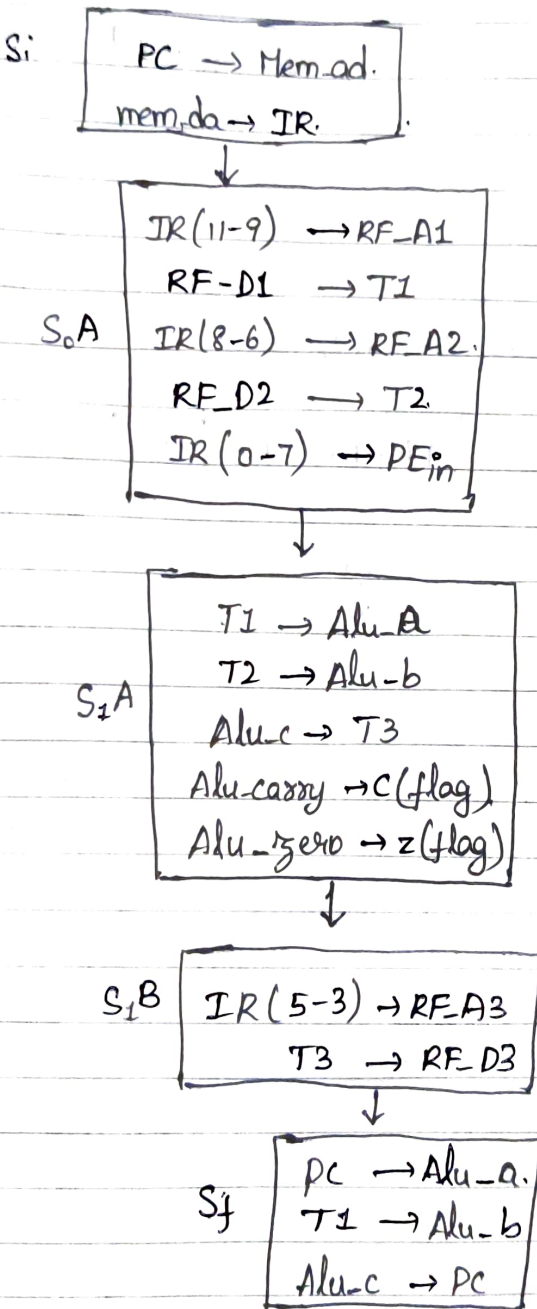 Si
PC → Mem_ad.
mem_da → IR.
S₀A
IR(11-9) → RF_A1
RF-D1 → T1
IR(8-6) → RF_A2.
RF_D2 → T2.
IR(0-7) → PEin
S₁A
T1 → Alu_a
T2 → Alu-b
Alu-c → T3
Alu-carry → C(flag)
Alu_zero → z(flag)
S₁B
IR(5-3) → RF_A3
T3 → RF_D3
Sf
PC → Alu_a.
T1 → Alu_b
Alu_c → PC